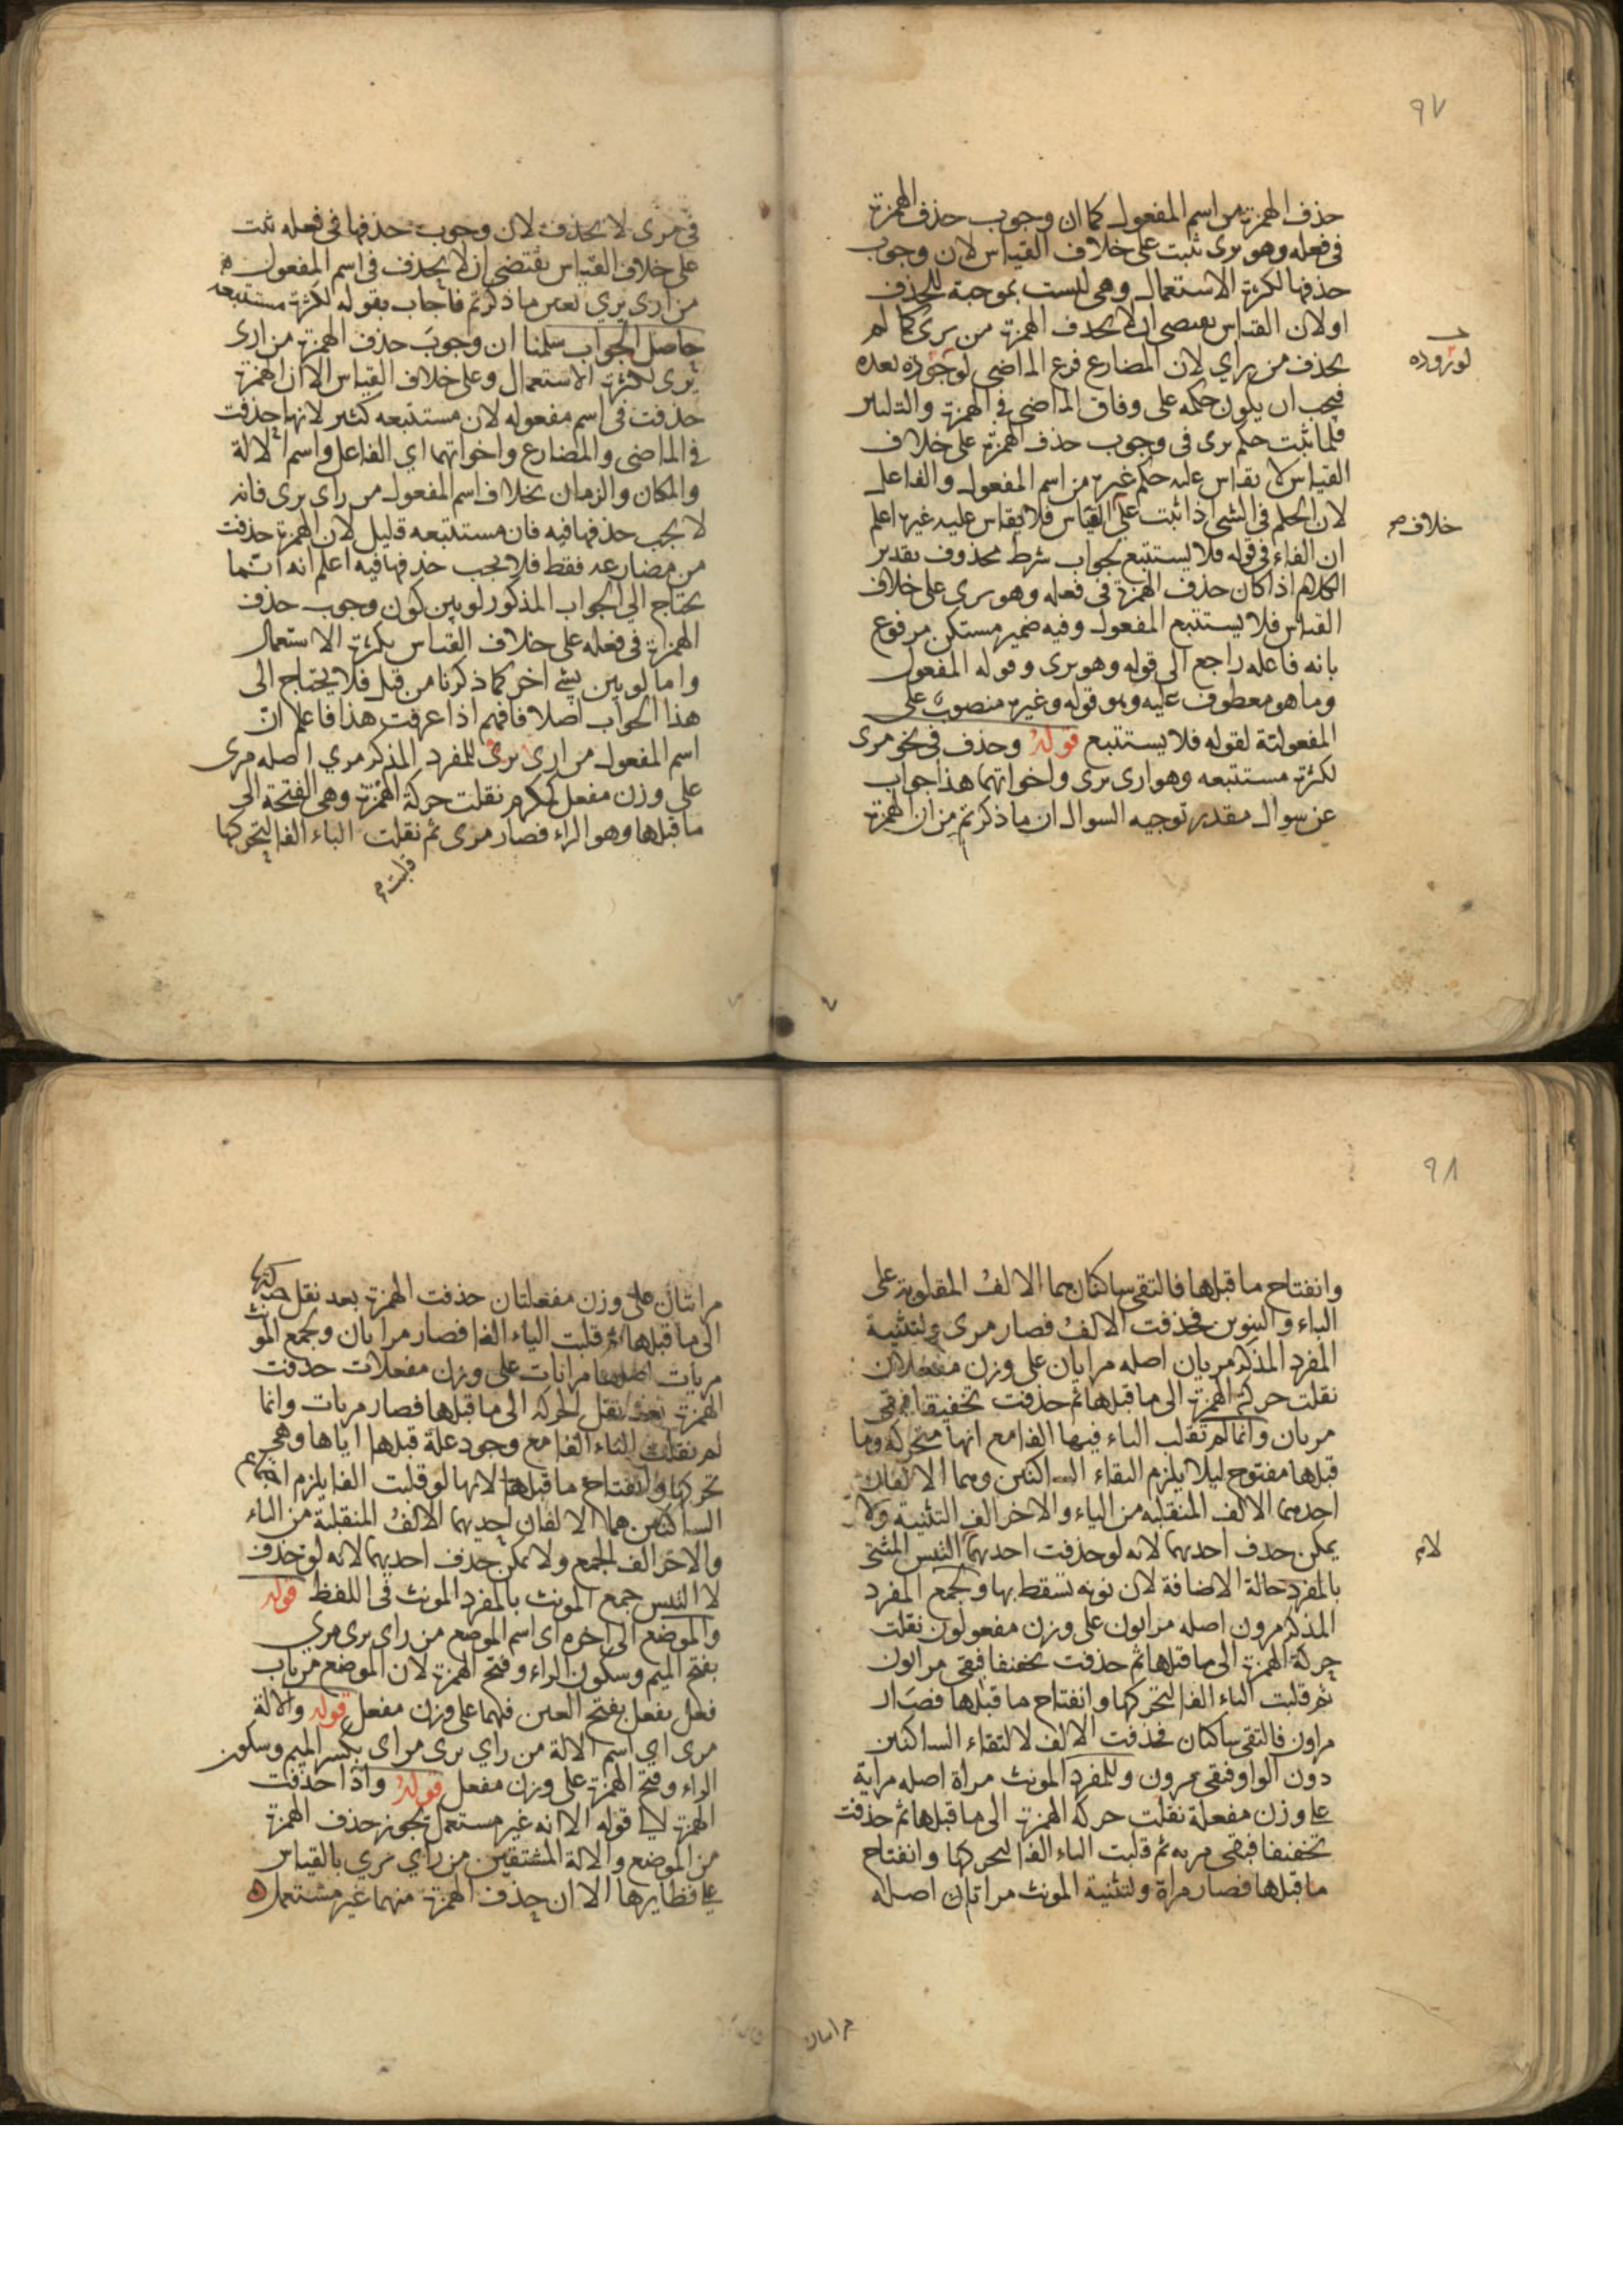 ٩٧
حذف الهمزة من اسم المفعول كما ان وجوب حذف الهمزة
فى فعله وهو يرى ثبت على خلاف القياس لان وجوب
حذفها لكثرة الاستعمال وهى ليست بموجبة للحذف
اولان القياس يقتضى ان لا يحذف الهمزة من يرى كما لم
يحذف من يراي لان المضارع فرع الماضى لوجوده بعده
لوروده
فيجب ان يكون حكمه على وفاق الماضى فى الهمزة والتليين
فلما ثبت حكم يرى فى وجوب حذف الهمزة على خلاف
القياس لا يقاس عليه حكم غيره من اسم المفعول والفاعل
لان الحكم فى الشى اذا ثبت على القياس فلا يقاس عليه غيره اعلم
خلاف
ان الفاء فى قوله فلا يستتبع بجواب شرط محذوف بقدير
الكلام اذا كان حذف الهمزة فى فعله وهو يرى على خلاف
القياس فلا يستتبع المفعول وفيه ضمير مستكن مرفوع
بانه فاعله راجع الى قوله وهو يرى وقوله المفعول
وما هو معطوف عليه وهو قوله وغيره منصوب على
المفعولية لقوله فلا يستتبع قوله وحذف فى نحو مرى
لكثرة مستتبعه وهو ارى يرى واخواتهما هذا جواب
عن سوال مقدر توجيه السوال ان ما ذكرتم من ان الهمزة
فى مرى لا يحذف لان وجوب حذفها فى فعله ثبت
على خلاف القياس يقتضى ان لا يحذف فى اسم المفعول
من ارى يري بعين ما ذكرتم فاجاب بقوله لكثرة مستتبعه
حاصل الجواب سلمنا ان وجوب حذف الهمزة من ارى
يرى لكثرة الاستعمال وعلى خلاف القياس الا ان الهمزة
حذفت فى اسم مفعوله لان مستتبعه كثير لانها حذفت
فى الماضى والمضارع واخواتهما اي الفاعل واسم الالة
والمكان والزمان بخلاف اسم المفعول من راى يرى فانه
لا يجب حذفها فيه فان مستتبعه قليل لان الهمزة حذفت
من مضارعه فقط فلا يجب حذفها فيه اعلم انه انما
يحتاج الى الجواب المذكور لو بين كون وجوب حذف
الهمزة فى فعله على خلاف القياس بكثرة الاستعمال
واما لو بين بشى اخر كما ذكرنا من قبل فلا يحتاج الى
هذا الجواب اصلا فافهم اذا عرفت هذا فاعلم ان
اسم المفعول من ارى يرى للمفرد المذكر مري اصله مرى
على وزن مفعل كمكرم نقلت حركة الهمزة وهى الفتحة الى
ما قبلها وهو الراء فصار مرى ثم نقلت الياء الفا لتحركها
قلبت
٩٨
وانفتاح ما قبلها فالتقى ساكنان هما الالف المقلوبة على
الياء والتنوين فحذفت الالف فصار مرى ولتثنية
المفرد المذكر مريان اصله مرايان على وزن مفعلان
نقلت حركة الهمزة الى ما قبلها ثم حذفت تخفيفا فبقى
مريان وانما لم تقلب الياء فيها الفا مع انها متحركة وما
قبلها مفتوح ليلا يلزم التقاء الساكنين وهما الالفان
احدهما الالف المنقلبه من الياء والاخر الف التثنية ولا
يمكن حذف احديهما لانه لو حذفت احديهما التبس المثنى
لام
بالمفرد حالة الاضافة لان نونه تسقط بها ولجمع المفرد
المذكر مرون اصله مرايون على وزن مفعولون نقلت
حركة الهمزة الى ما قبلها ثم حذفت تخفيفا فبقى مرايون
ثم قلبت الياء الفا لتحركها وانفتاح ما قبلها فصار
مراون فالتقى ساكنان فحذفت الالف لالتقاء الساكنين
دون الواو فبقى مرون وللمفرد المونث مراة اصله مراية
على وزن مفعلة نقلت حركة الهمزة الى ما قبلها ثم حذفت
تخفيفا فبقى مريه ثم قلبت الياء الفا لتحركها وانفتاح
ما قبلها فصار مراة ولتثنية المونث مراتان اصله
مراتان على وزن مفعلتان حذفت الهمزة بعد نقل حركتها
الى ما قبلها ثم قلبت الياء الفا فصار مرايان ولجمع المونث
مريات اصلها مرايات على وزن مفعلات حذفت
الهمزة بعد نقل الحركة الى ما قبلها فصار مريات وانما
لم نقلب الياء الفا مع وجود علة قبلها اياها وهى
تحركها وانفتاح ما قبلها لانها لو قلبت الفا يلزم اجتماع
الساكنين هما الالفان احديهما الالف المنقلبة من الياء
والاخر الف الجمع ولا يمكن حذف احديهما لانه لو حذف
لالتبس جمع المونث بالمفرد المونث فى اللفظ قوله
والموضع الى اخره اى اسم الموضع من راى يرى مري
بفتح الميم وسكون الراء وفتح الهمزة لان الموضع من باب
فعل يفعل بفتح العين فيهما على وزن مفعل قوله والالة
مرى اي اسم الالة من راي يرى مراى بكسر الميم وسكون
الراء وفتح الهمزة على وزن مفعل قوله واذا حذفت
الهمزة الى قوله الا انه غير مستعمل يجوز حذف الهمزة
من الموضع والالة المشتقين من راي يري بالقياس
على نظايرها الا ان حذف الهمزة منهما غير مستعمل
مراتان